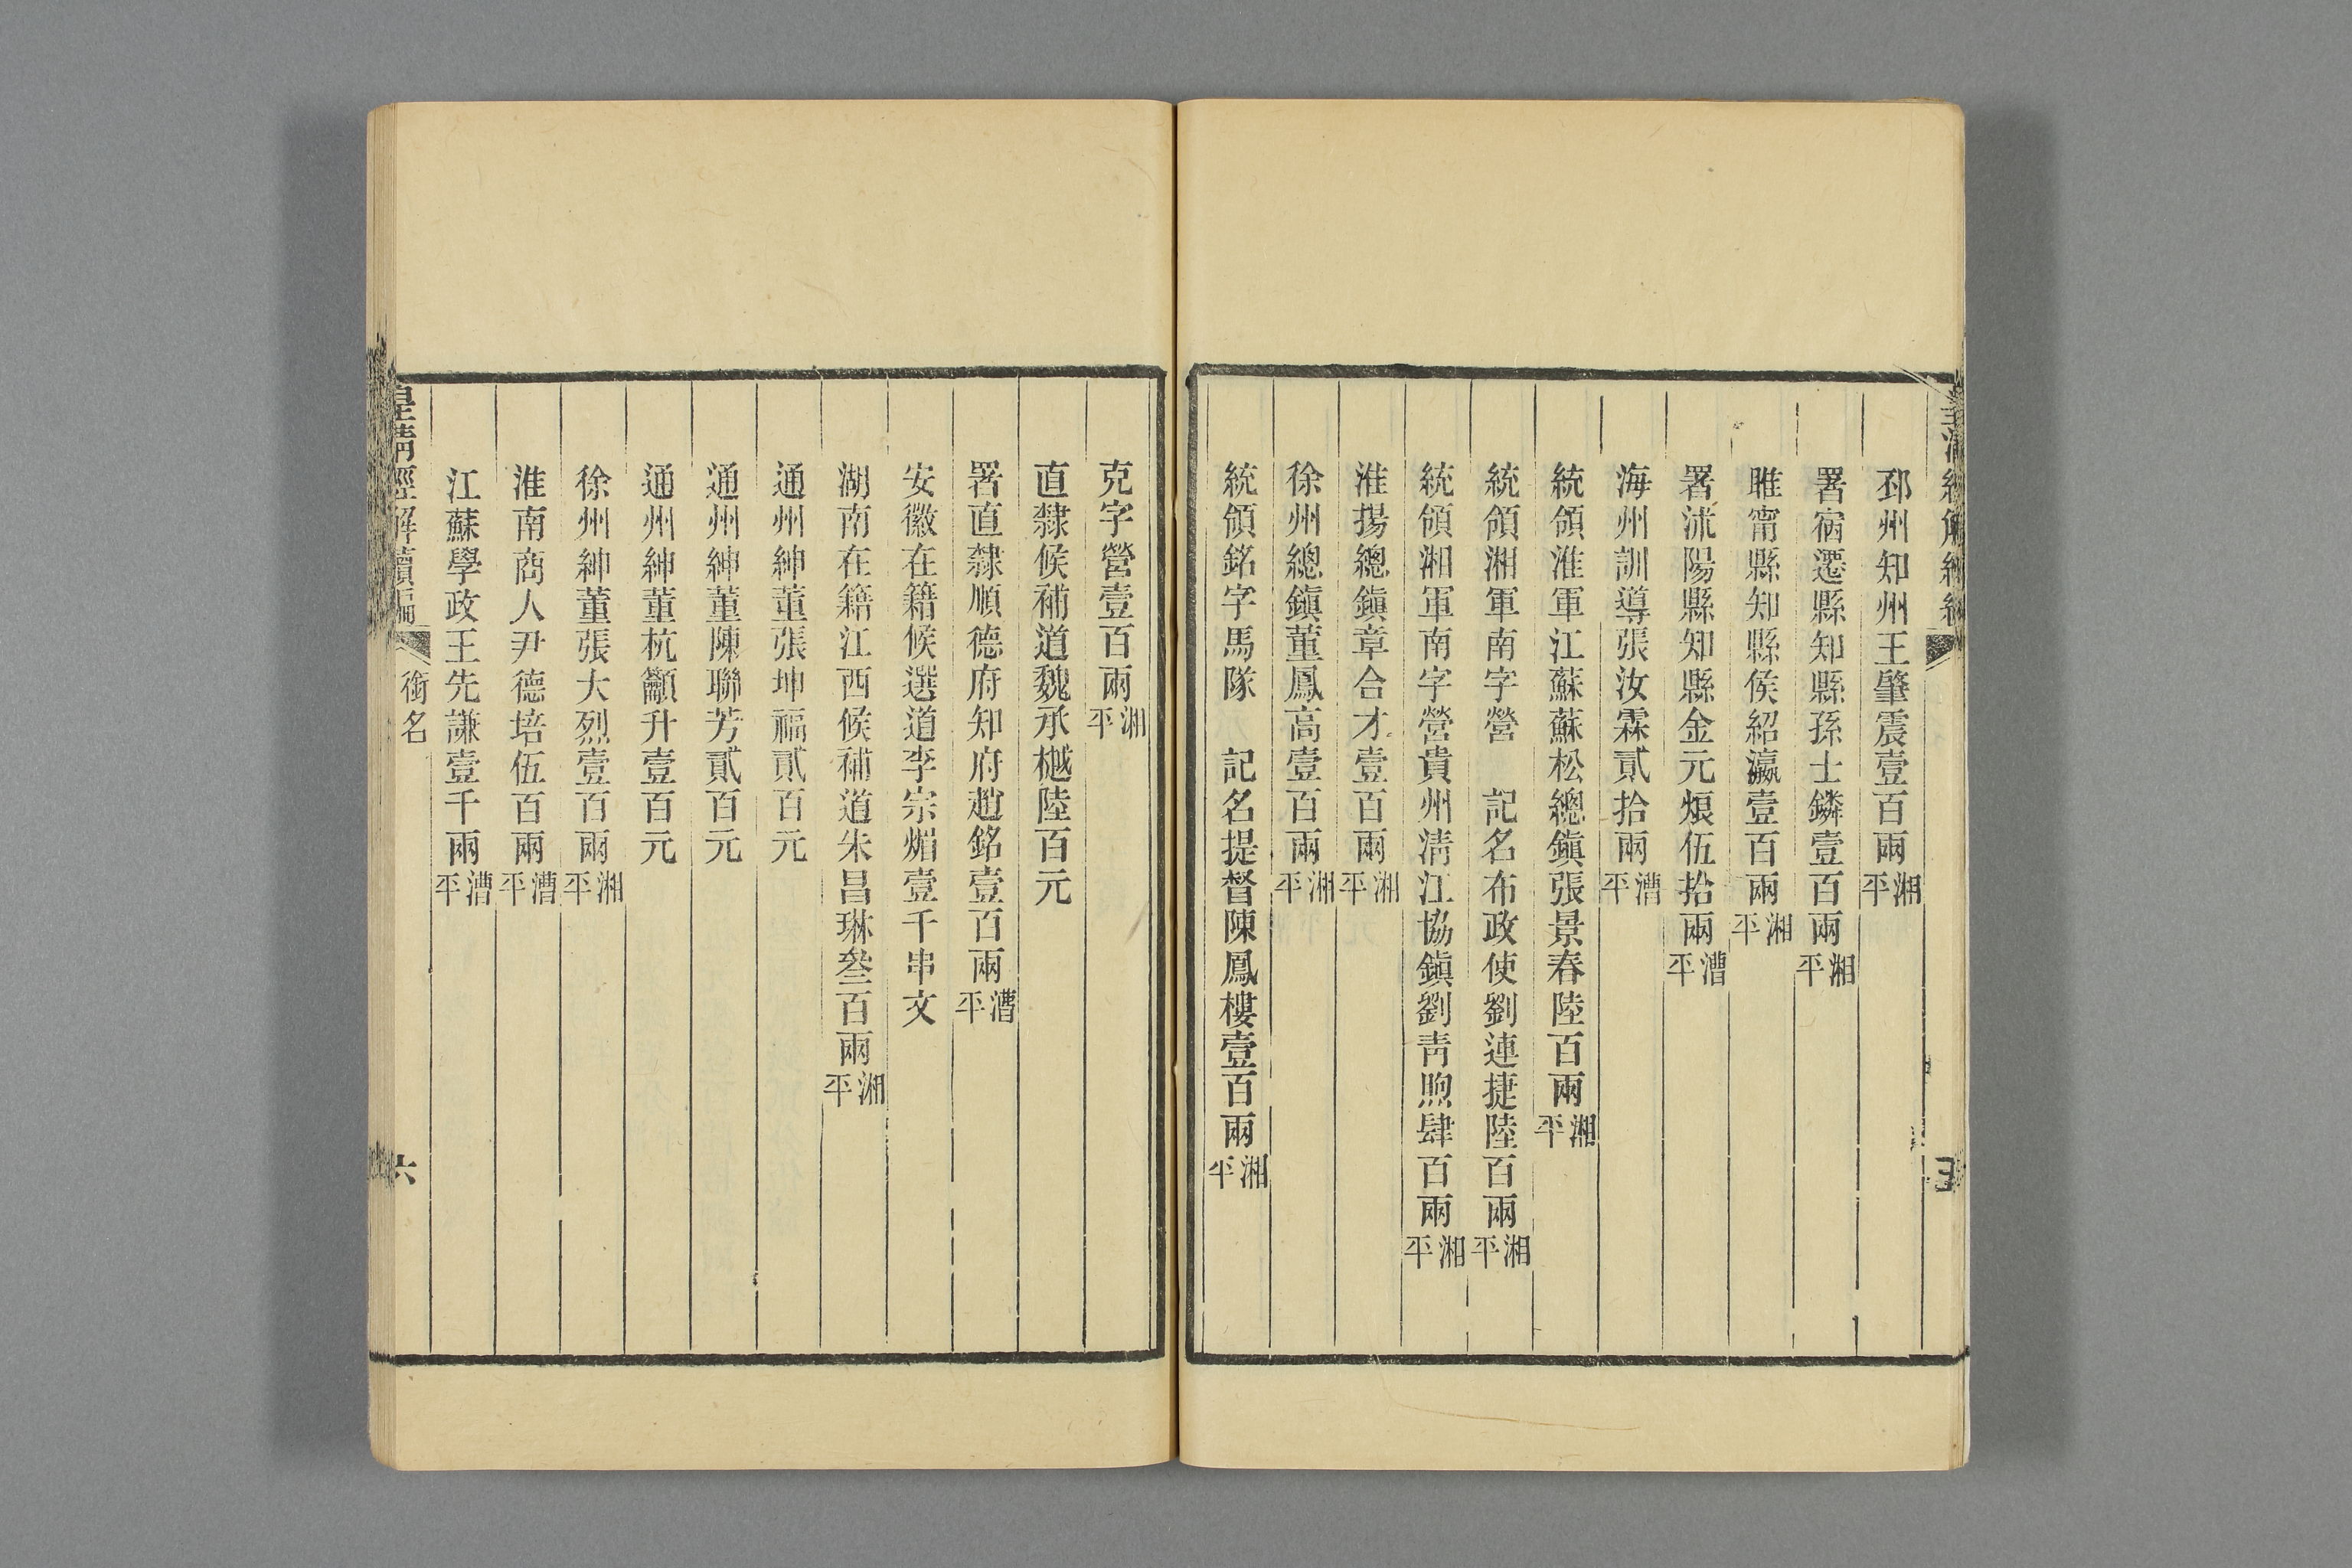 邳州知州王肇震壹百兩湘平
署宿遷縣知縣孫士鏻壹百兩湘平
睢甯縣知縣侯紹瀛壹百兩湘平
署沭陽縣知縣金元烺伍拾兩漕平
海州訓導張汝霖貳拾兩漕平
統領淮軍江蘇蘇松總鎮張景春陸百兩湘平
統領湘軍南字營 記名布政使劉連捷陸百兩湘平
統領湘軍南字營貴州清江協鎮劉青煦肆百兩湘平
淮揚總鎮章合才壹百兩湘平
徐州總鎮董鳳高壹百兩湘平
統領銘字馬隊 記名提督陳鳳樓壹百兩湘平
克字營壹百兩湘平
直隸候補道魏承樾陸百元
署直隸順德府知府趙銘壹百兩漕平
安徽在籍候選道李宗煝壹千串文
湖南在籍江西候補道朱昌琳叄百兩湘平
通州紳董張坤福貳百元
通州紳董陳聯芳貳百元
通州紳董杭籲升壹百元
徐州紳董張大烈壹百兩湘平
淮南商人尹德培伍百兩漕平
江蘇學政王先謙壹千兩漕平
皇清經解續編 銜名 六